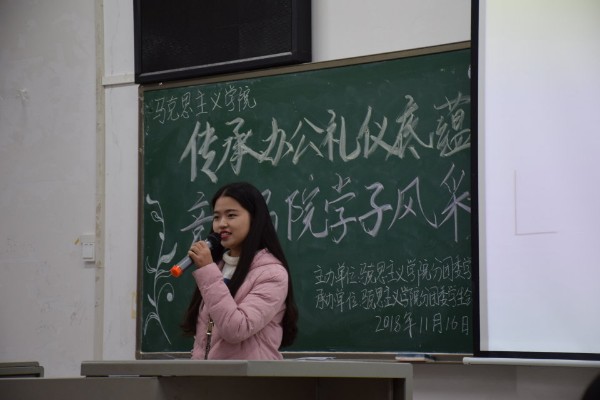 马克思主义学院
传承办公礼仪底蕴
院学子风采
主办单位:马克思主义学院分团委学
承办单位:马克思主义学院分团委学生会
2018年11月16日